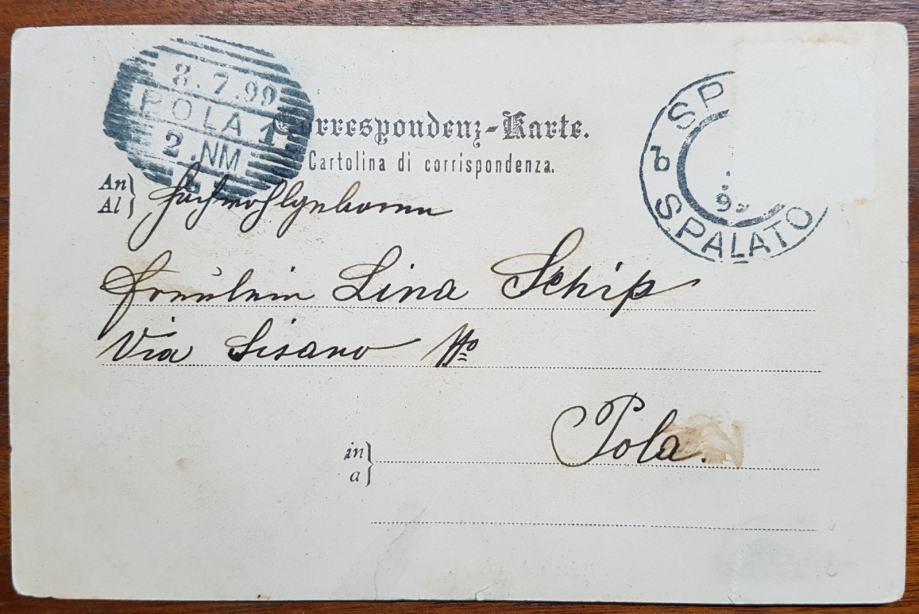 8.7.99
POLA 1
2.NM
Correspondenz-Karte.
Cartolina di corrispondenza.
SP
b
99
SPALATO
An
Al
Hochwohlgeboren
Fräulein Lina Schip
Via Sisano No
Pola.
in
a